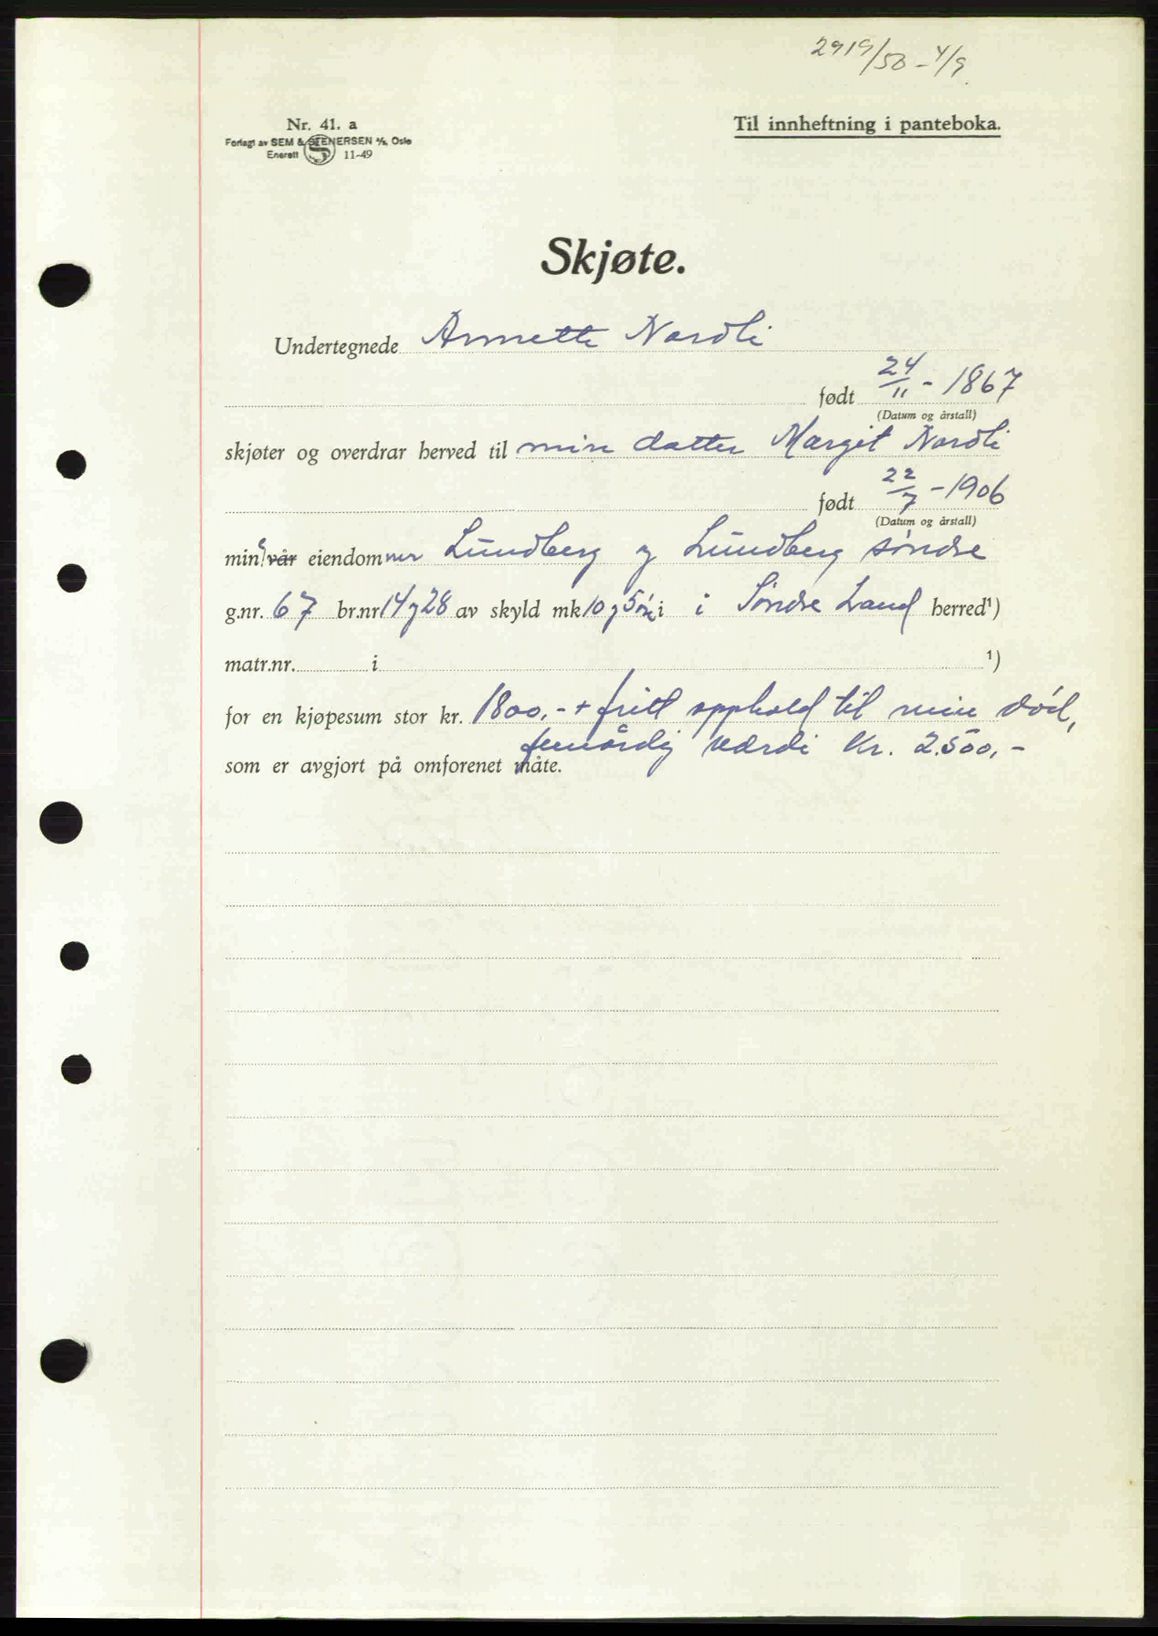 2919/50 - 4/9
Nr. 41. a
Til innheftning i panteboka.
Forlagt av SEM & STENERSEN A/S, Oslo
Enerett 11-49
Skjøte.
Undertegnede Annette Nordli
født 24/11 - 1867
(Datum og årstall)
skjøter og overdrar herved til min datter Margit Nordli
født 22/7 - 1906
(Datum og årstall)
mine/vår eiendommer Lundberg og Lundberg søndre
g.nr. 67 br.nr 14 og 28 av skyld mk 10 og 5 øre i i Søndre Land herred¹)
matr.nr. i ¹)
for en kjøpesum stor kr. 1800,- + fritt opphold til min død,
femårig verdi Kr. 2.500,-
som er avgjort på omforenet måte.